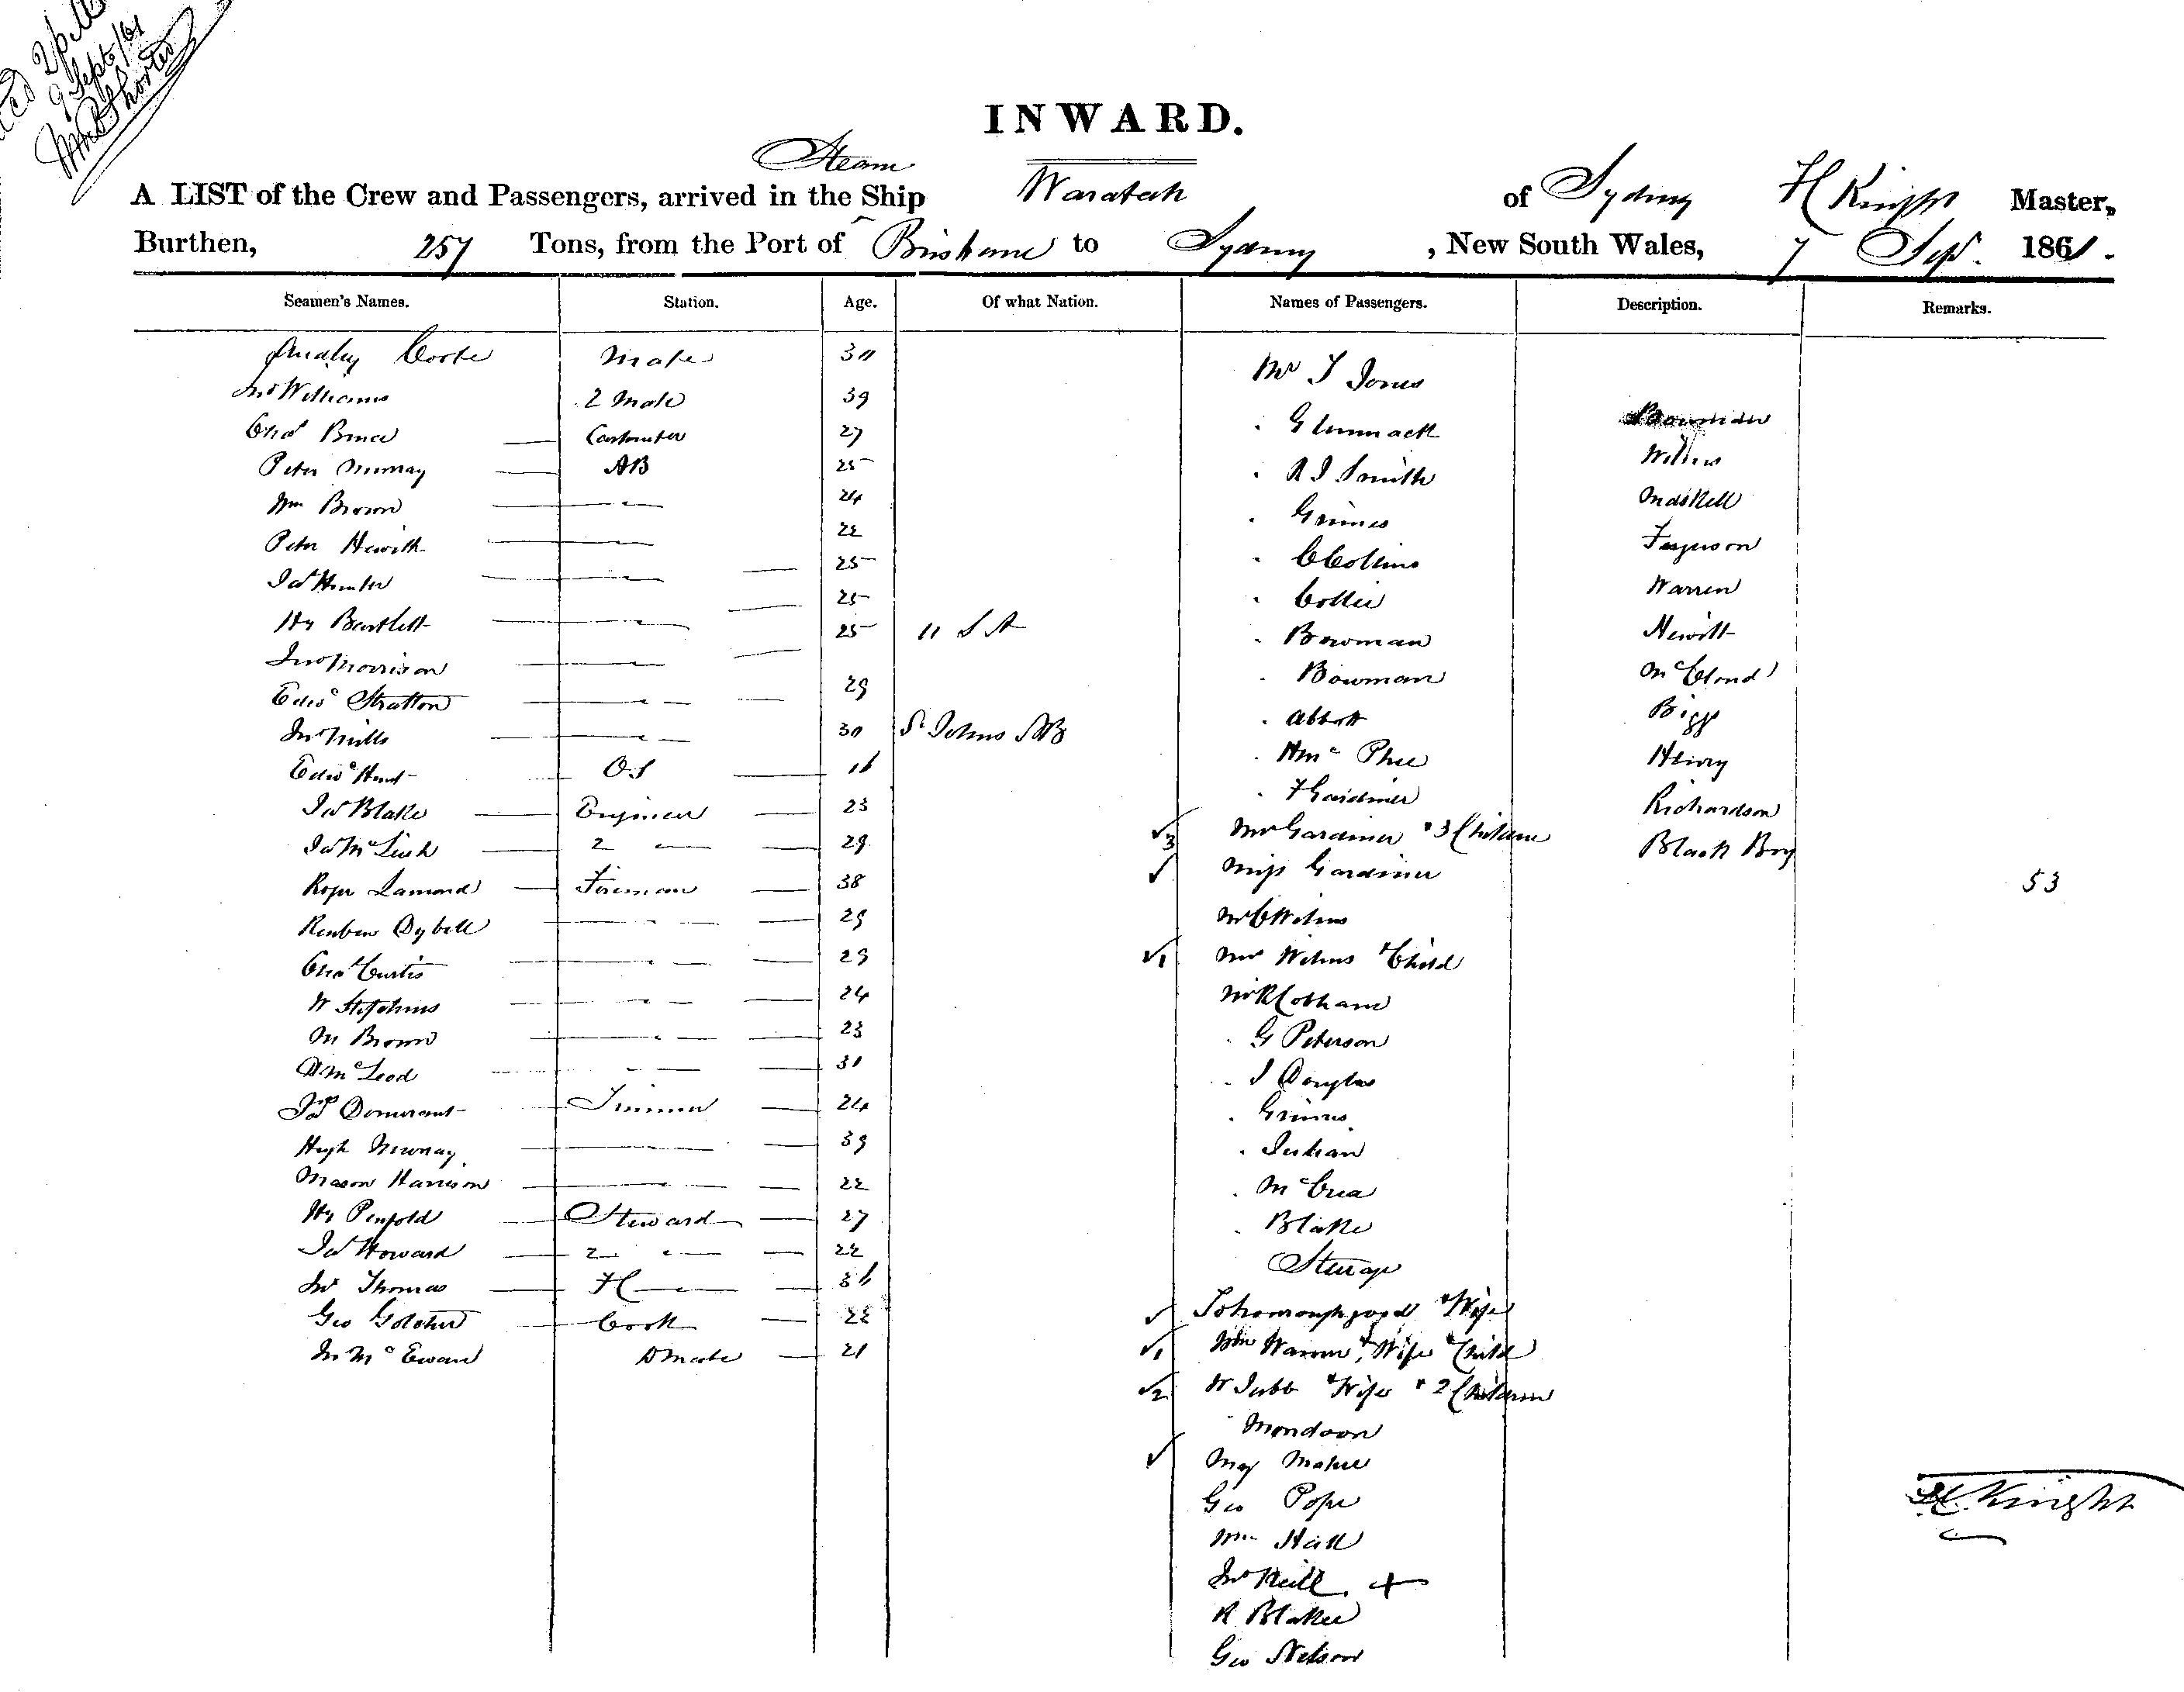 2 pm
9 Sept/61
INWARD.
Steam
A LIST of the Crew and Passengers, arrived in the Ship Waratah of Sydney H Knight Master,
Burthen, 257 Tons, from the Port of Brisbane to Sydney, New South Wales, 7 Sep. 1861.
Seamen's Names. Station. Age. Of what Nation. Names of Passengers. Description. Remarks.
Audley Coote Mate 30
Jno Williams 2 Mate 39
Chas Bruce Carpenter 27
Peter Murray AB 25
Wm Brown 24
Peter Hewith 22
Jas Hunter 25
Hy Bartlett 25
Jno Morrison 25 U S A
Edwd Stratton 29
Jno Mills 30 St Johns NB
Edwd Hunt O.S 16
Jas Blake Engineer 23
Jas McLish 2 " 29
Roger Lamond Fireman 38
Reuben Dybell 29
Chas Curtis 29
W Stephens 24
M Brown 23
D McLeod 31
Trimmer 24
Hugh Murray 39
Mason Harrison 22
Hy Penfold Steward 27
Jas Howard 2 " 22
Jno Thomas 36
Geo Cook 22
Jn McEwan 21
Mr T Jones
" R J Smith
" Grimes
" C Collins
" Collie
" Bowman
" Bowman
" Abbott
" McPhee
" F Gardiner
3 Mrs Gardiner & 3 Children
Miss Gardiner
Mr C Wilms
1 Mrs Wilms & Child
Mr R Cobham
" G Peterson
" J Douglas
" Grimes
" Julian
" McCrea
" Blake
Steerage
& Wife
1 Wm Warren, & Wife & Child
2 W Jubb & Wife & 2 Children
Mondoon
May Maher
Geo Pope
Wm Hall
Jno Neill +
R Blake
Geo Nelson
Maskell
Ferguson
Warren
Hewitt
McCloud
Bigge
Henry
Richardson
Black Boy
53
H. Knight